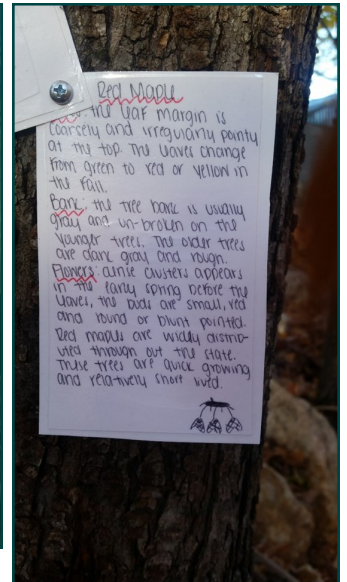 Red Maple
the leaf margin is
coarsely and irregularly pointy
at the top. The leaves change
from green to red or yellow in
the fall.
Bark: the tree bark is usually
gray and un-broken on the
younger trees. The older trees
are dark gray and rough.
Flowers: dense clusters appears
in the early spring before the
leaves, the buds are small, red
and round or blunt pointed.
Red maples are widly distrib-
uted through out the state.
These trees are quick growing
and relatively short lived.